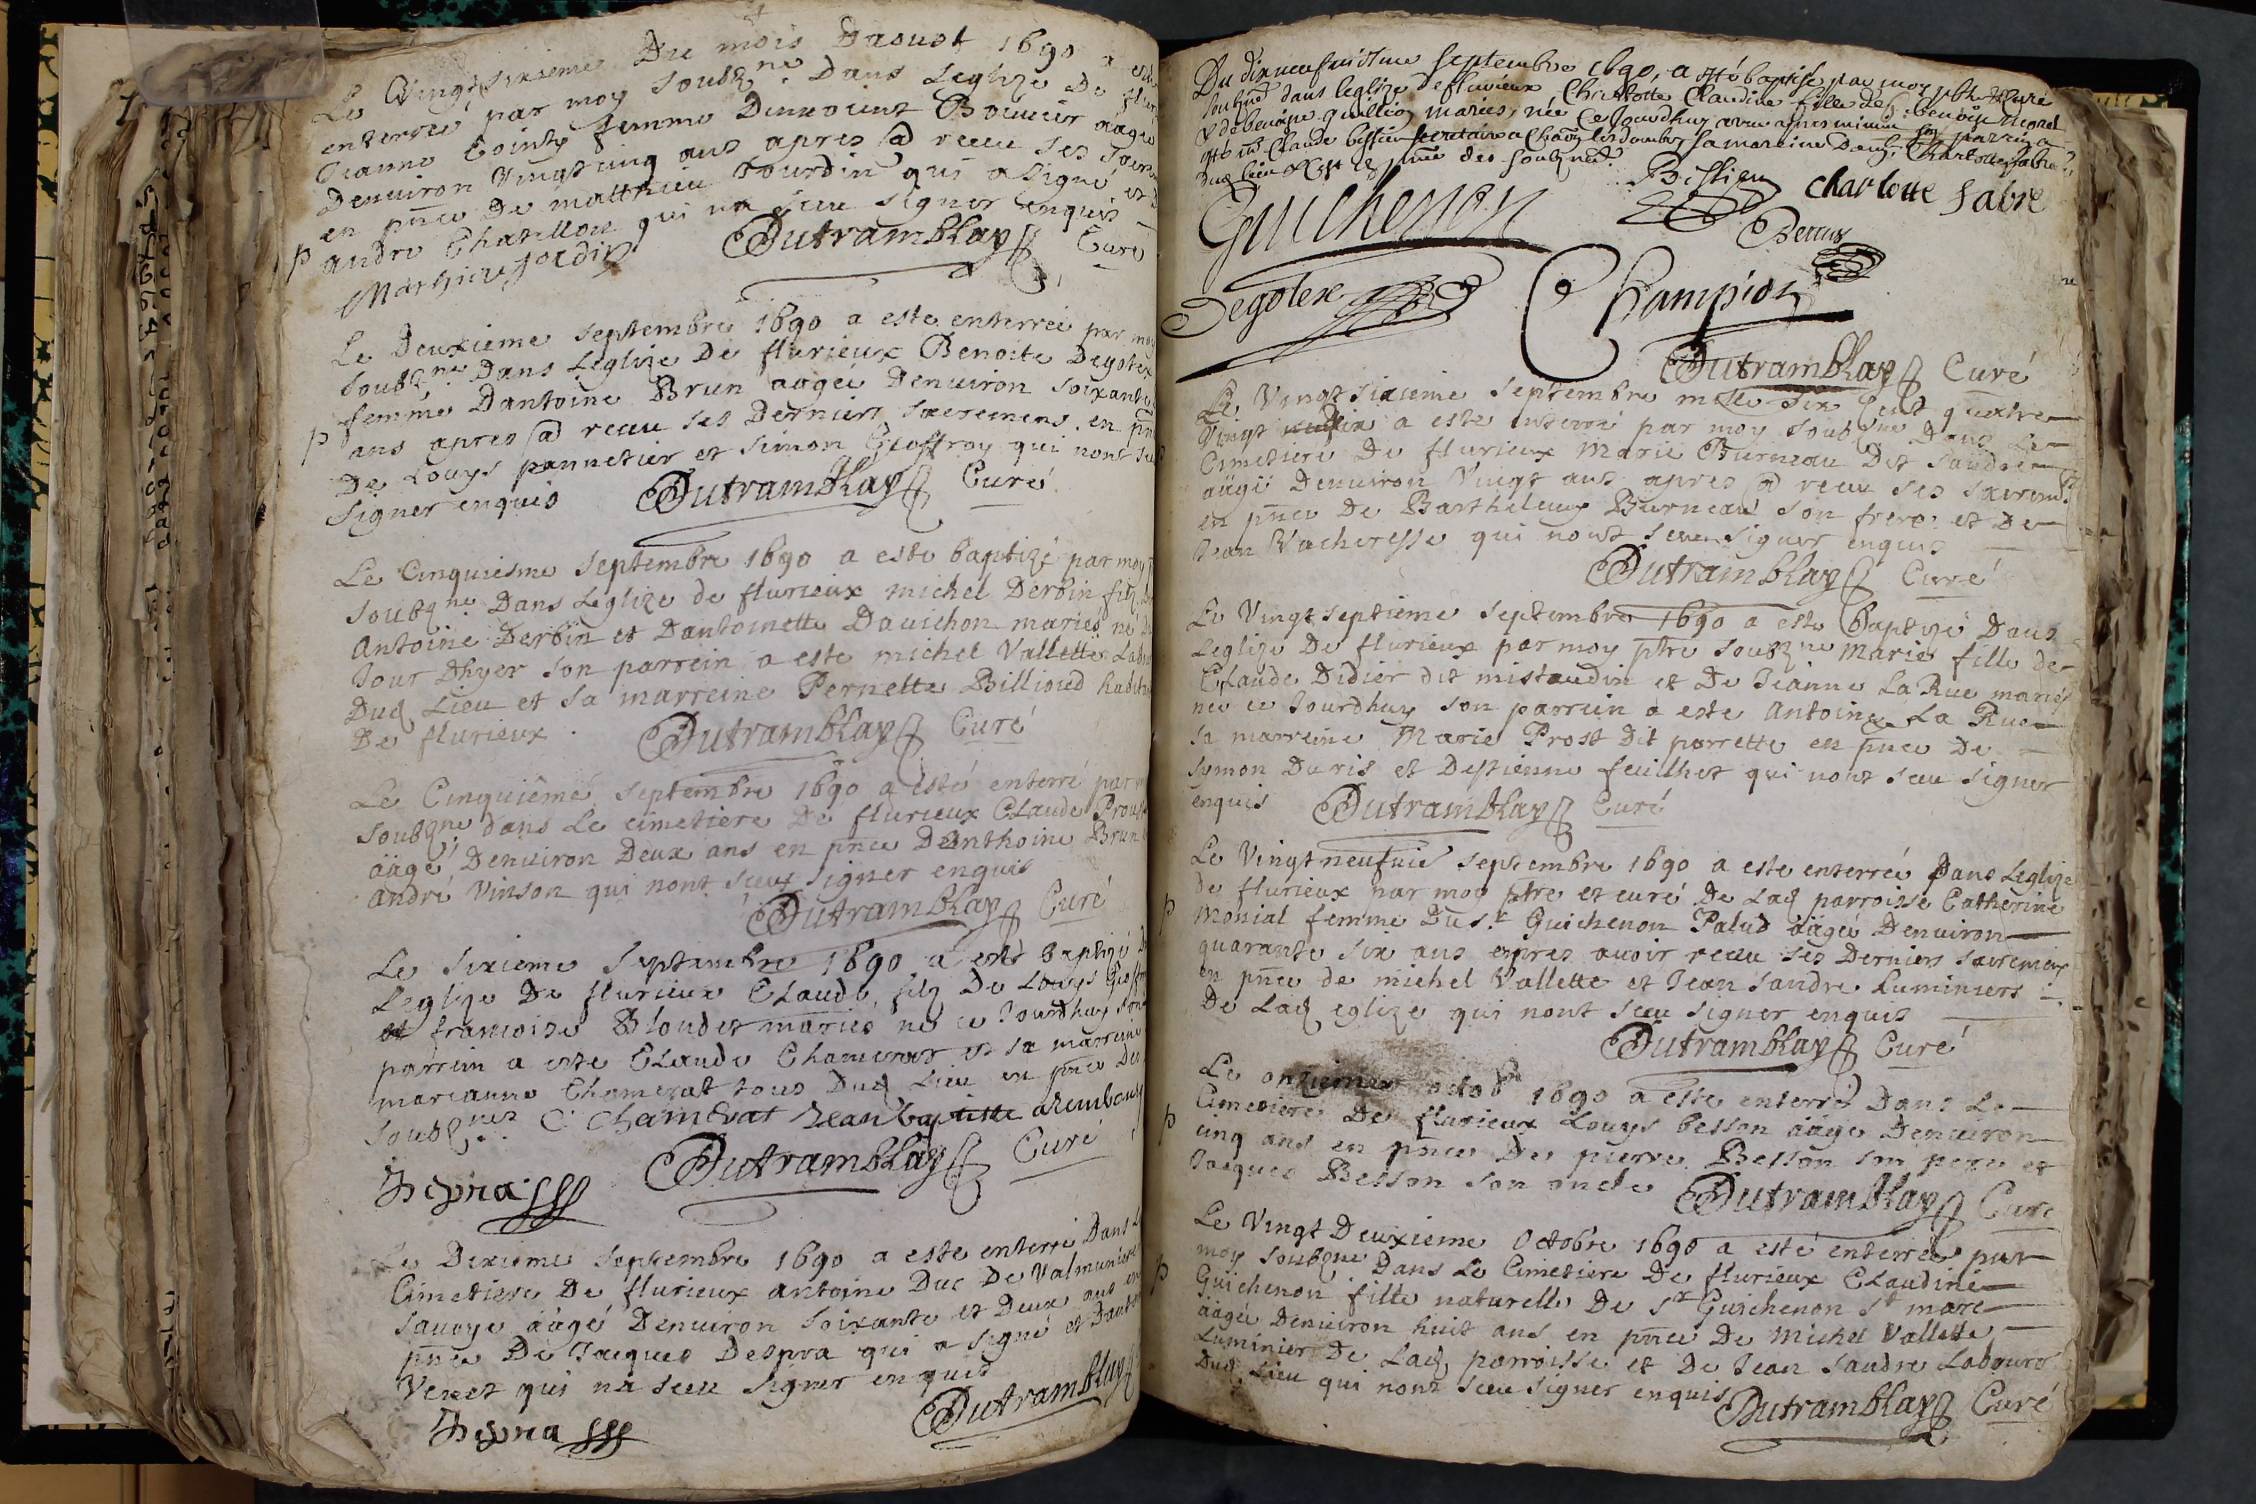 Le Vingt sixieme Du mois Daoust 1690 a este
enterreé par moy soubzne. Dans Leglize De fluri
Jeanne Cointy femme Dinnocent Bouuier aagée
Denuiron Vingtcinq ans apres @ receu ses sacre
en pnce De matthieu Jourdin qui a Signé et D
p andre Chatillon qui na sceu signer enquis
Dutramblay Curé
Mathieu Jordin
Le Deuxieme septembre 1690 a este enterreé par moy
soubzne Dans Leglize De flurieux Benoite Degotex
femme Dantoine Brun aageé Denuiron soixante
p ans apres @ receu ses Derniers sacremens. en pn
De Louys pannetier et simon Geoffroy qui nont sce
signer enquis Dutramblay Curé
Le Cinquiesme septembre 1690 a este baptizé par moy p
soubzne Dans Leglize de flurieux michel Derbin filz
Antoine Derbin et Dantoinette Dauichon mariés né
Jour Dhyer son parrein a este michel Vallette Labo
Dud Lieu et sa marreine Pernette Billioud habita
De flurieux. Dutramblay Curé
Le Cinquiême septembre 1690 a esté enterré par
soubzne dans Le cimetiere De flurieux Claude Proust
äägé Denuiron Deux ans en pnce Danthoine Brun
andré Vinson qui nont sceu signer enquis
Dutramblay Curé
Le sixieme septambre 1690 a este baptizé D
Leglize De flurieux Claude filz De Louys Geof
et francoise Blondet mariés né ce Jourdhuy son
parrein a este Claude Chamerat et sa marreine
marianne Chamerat tous Dud Lieu en pnce Des
soubznez C. Chamerat Jean baptiste
Dutramblay Curé
Despra
Le Dixieme septembre 1690 a este enterré Dans L
Cimetiere De flurieux antoine Duc De Valmunier
sauoye äägé Denuiron soixante et Deux ans en
pnce De Jacques Despra qui a signé et Dant
Venet qui na sceu signer enquis
Dutramblay
Despra
Du dixneufuiesme septembre 1690, a esté baptisé par moy ptre et Curé
soubzne dans leglize de flurieux Charlotte Claudine fille de
& de benoite quillion mariés, née ce jourdhuy son parrein a
esté mre Claude bissieu sa marreine Damlle Charlotte fabre
Guichenon Bissieu charlotte fabre
Degotex Champion
Dutramblay Curé
Le Vingt sixieme septembre mille six Cent quatre
Vingt dix a este enterré par moy soubzne Dans Le
Cimetiere De flurieux Marie Burneau Dit sandre
äagé Denuiron Vingt ans apres @ receu ses sacremts
en pnce De Barthelemy Burneau son frere et De
Jean Vacheresse qui nont sceu signer enquis
Dutramblay Curé
Le Vingt septieme septembre 1690 a este Baptizé Dans
Leglize De flurieux par moy ptre soubzne Marie fille de
Claude Didier dit mistaudin et De Jeanne La Rue mariés
née ce Jourdhuy son parrein a este Antoine La Rue
sa marreine Marie Prost Dit perrette en pnce De
symon Duris et Destienne feuillet qui nont sceu signer
enquis Dutramblay Curé
Le Vingtneufuie septembre 1690 a este enterreé Dans Leglize
de flurieux par moy ptre et curé De Lad parroisse Catherine
p Monial femme Du sr Guichenon Palud äägée Denuiron
quarante six ans apres auoir receu ses Derniers sacremens
en pnce de michel Vallette et Jean sandre Luminiers
De Lad eglize qui nont sceu signer enquis
Dutramblay Curé
Le onzieme octobre 1690 a este enterré Dans Le
Cimetiere De flurieux Louys besson äägé Denuiron
p cinq ans en pnce De pierre Besson son pere et
Jacques Besson son oncle Dutramblay Curé
Le Vingt Deuxieme Octobre 1690 a esté enterreé par
moy soubzne Dans Le Cimetiere De flurieux Claudine
p Guichenon fille naturelle De sr Guichenon st marc
äagée Denuiron huit ans en pnce De Michel Vallette
Luminier De Lad parroisse et De Jean sandre Laboure
Dud Lieu qui nont sceu signer enquis Dutramblay Curé